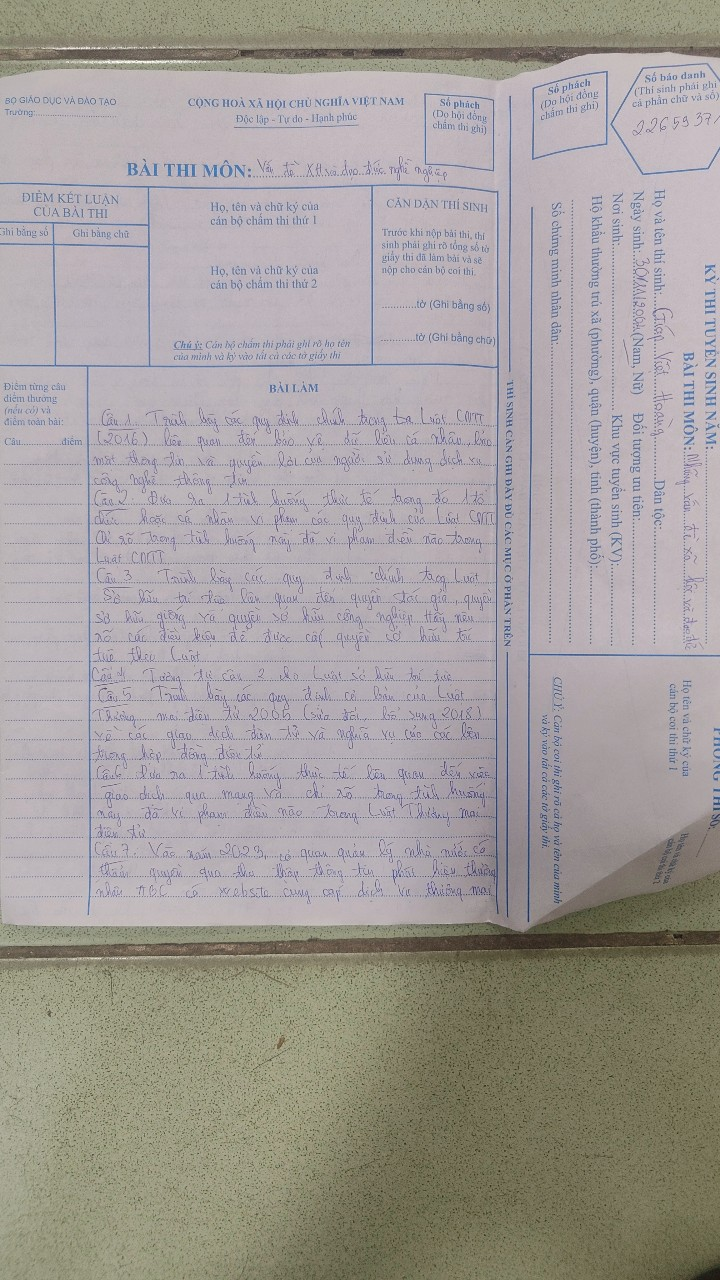 BỘ GIÁO DỤC VÀ ĐÀO TẠO
Trường:
CỘNG HOÀ XÃ HỘI CHỦ NGHĨA VIỆT NAM
Độc lập - Tự do - Hạnh phúc
Số phách
(Do hội đồng
chấm thi ghi)
BÀI THI MÔN: Vấn đề XH và đạo đức nghề nghiệp
ĐIỂM KẾT LUẬN
CỦA BÀI THI
Ghi bằng số
Ghi bằng chữ
Họ, tên và chữ ký của
cán bộ chấm thi thứ 1
Họ, tên và chữ ký của
cán bộ chấm thi thứ 2
Chú ý: Cán bộ chấm thi phải ghi rõ họ tên
của mình và ký vào tất cả các tờ giấy thi
CĂN DẶN THÍ SINH
Trước khi nộp bài thi, thí
sinh phải ghi rõ tổng số tờ
giấy thi đã làm bài và sẽ
nộp cho cán bộ coi thi.
tờ (Ghi bằng số)
tờ (Ghi bằng chữ)
Điểm từng câu
điểm thưởng
(nếu có) và
điểm toàn bài:
Câu điểm
BÀI LÀM
Câu 1. Trình bày các quy định chính trong Luật CNTT
(2016) liên quan đến bảo vệ dữ liệu cá nhân, bảo
mật thông tin và quyền lợi của người sử dụng dịch vụ
công nghệ thông tin
Câu 2. Đưa ra 1 tình huống thực tế trong đó 1 tổ
chức hoặc cá nhân vi phạm các quy định của Luật CNTT
Chỉ rõ trong tình huống này đã vi phạm điều nào trong
Luật CNTT
Câu 3. Trình bày các quy định chính trong Luật
Sở hữu trí tuệ liên quan đến quyền tác giả, quyền
sở hữu giống và quyền sở hữu công nghiệp Hãy nêu
rõ các điều kiện để được cấp quyền sở hữu trí
tuệ theo Luật
Câu 4. Tương tự câu 2 cho Luật sở hữu trí tuệ
Câu 5. Trình bày các quy định cơ bản của Luật
Thương mại điện tử 2005 (sửa đổi, bổ sung 2018)
về các giao dịch điện tử và nghĩa vụ của các bên
trong hợp đồng điện tử
Câu 6 Đưa ra 1 tình huống thực tế liên quan đến việc
giao dịch qua mạng và chỉ rõ trong tình huống
này đã vi phạm điều nào trong Luật Thương mại
điện tử
Câu 7. Vào năm 2023, cơ quan quản lý nhà nước có
thẩm quyền qua thu thập thông tin phát hiện thương
nhân ABC có website cung cấp dịch vụ thương mại
THÍ SINH CẦN GHI ĐẦY ĐỦ CÁC MỤC Ở PHẦN TRÊN
Số phách
(Do hội đồng
chấm thi ghi)
Số báo danh
(Thí sinh phải ghi
cả phần chữ và số)
KỲ THI TUYỂN SINH NĂM:
BÀI THI MÔN: Những vấn đề xã hội và đạo đức
Họ và tên thí sinh: Giáp Việt Hoàng Dân tộc:
Ngày sinh: 30/11/2004 (Nam, Nữ) Đối tượng ưu tiên:
Nơi sinh: Khu vực tuyển sinh (KV):
Hộ khẩu thường trú xã (phường), quận (huyện), tỉnh (thành phố):
Số chứng minh nhân dân:
PHÒNG THI SỐ:
Họ tên và chữ ký của
cán bộ coi thi thứ 1
Họ tên và chữ ký của
cán bộ coi thi thứ 2
CHÚ Ý: Cán bộ coi thi ghi rõ cả họ và tên của mình
và ký vào tất cả các tờ giấy thi.